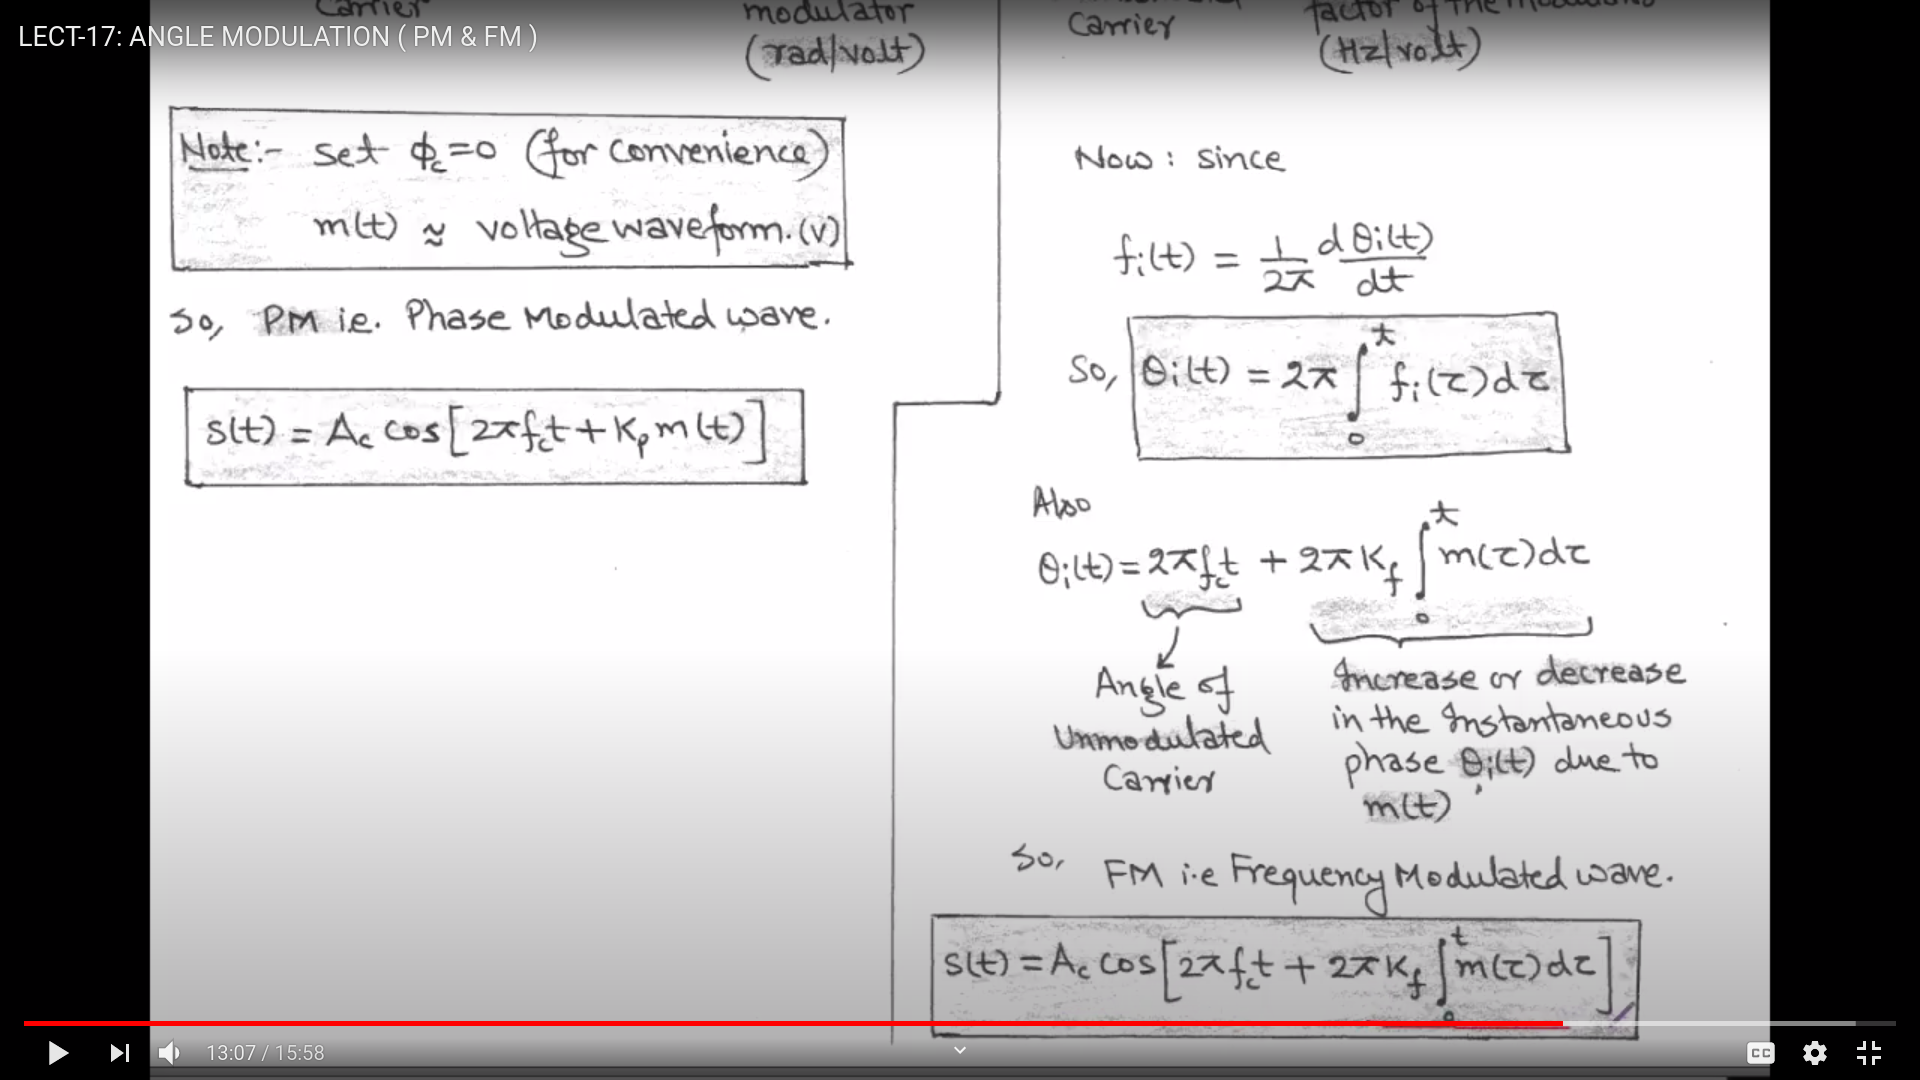 LECT-17: ANGLE MODULATION ( PM & FM )
Carrier
modulator
(rad/volt)
Note:- set ϕc=0 (for convenience)
m(t) ≈ voltage waveform.(v)
So, PM ie. Phase Modulated wave.
s(t) = Ac cos[2πfct + Kp m(t)]
Carrier
factor of the
(Hz/volt)
Now : since
fi(t) = 1/2π dθi(t)/dt
So, θi(t) = 2π ∫₀ᵗ fi(τ)dτ
Also
θi(t) = 2πfct + 2πKf ∫₀ᵗ m(τ)dτ
Angle of
Unmodulated
Carrier
Increase or decrease
in the Instantaneous
phase θi(t) due to
m(t)
So, FM i.e Frequency Modulated wave.
s(t) = Ac cos[2πfct + 2πKf ∫₀ᵗ m(τ)dτ]
13:07 / 15:58
CC